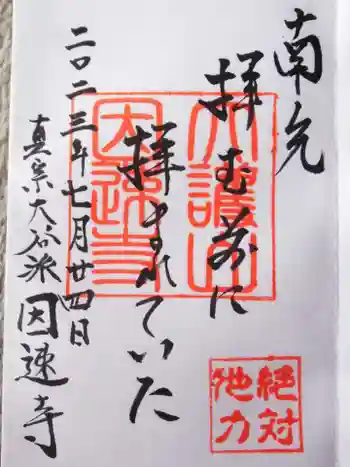 南無
拝む前に
拝まれていた
二〇二三年七月廿四日
真宗大谷派 因速寺
絶対
他力